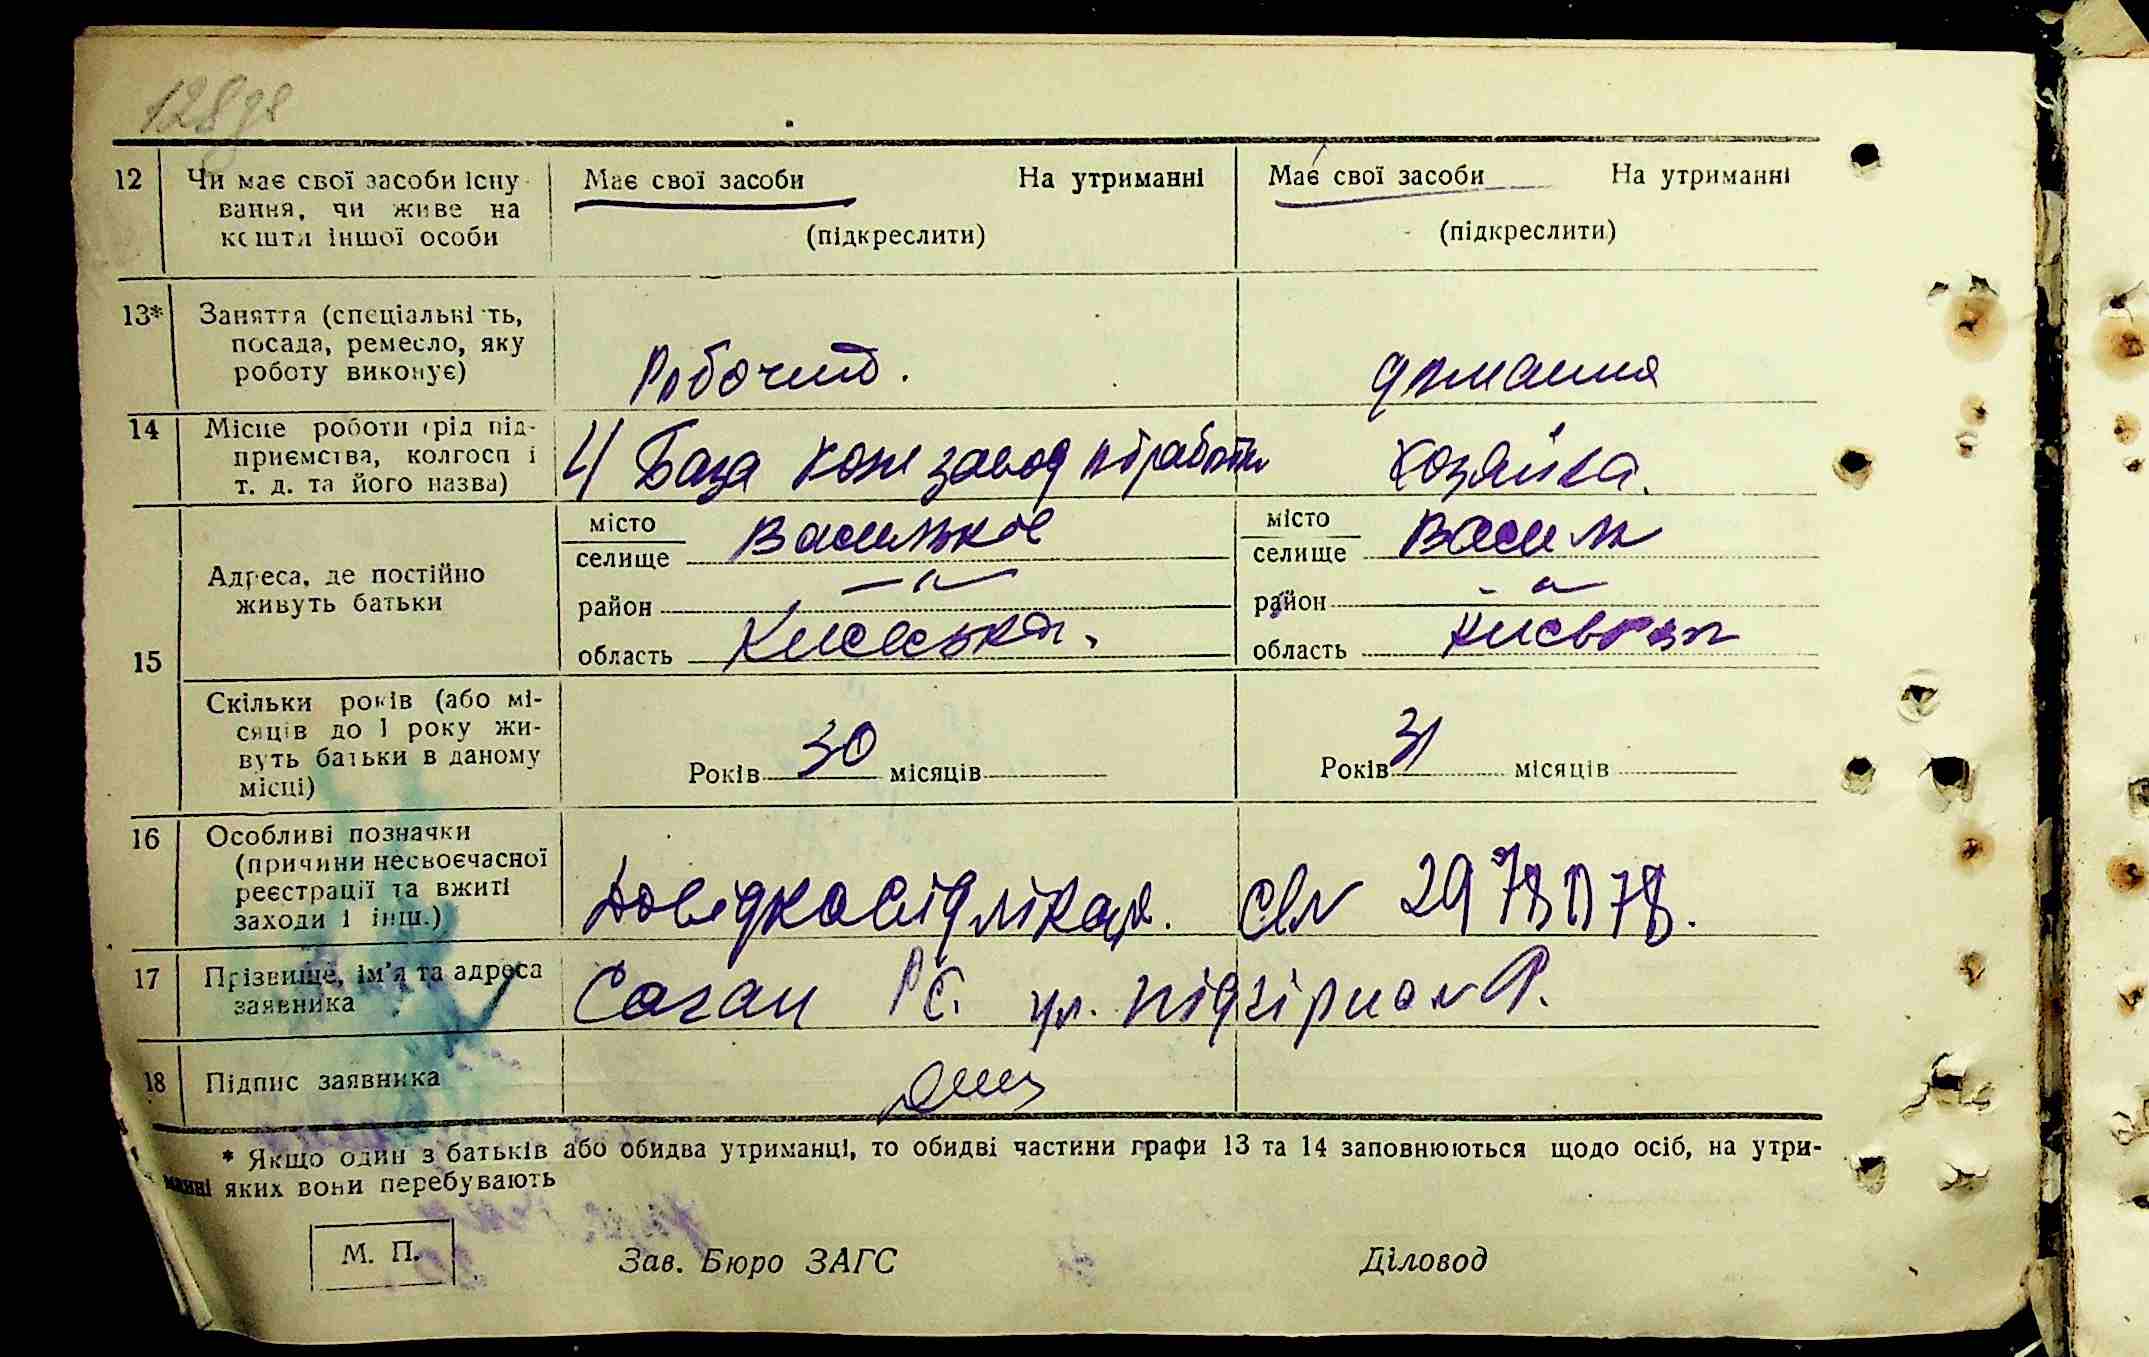 128
12 Чи має свої засоби існу- Має свої засоби На утриманні Має свої засоби На утриманні
вання, чи живе на (підкреслити) (підкреслити)
кошти іншої особи
13* Заняття (спеціальні ть,
посада, ремесло, яку
роботу виконує) Робочий. домашня
14 Місце роботи (рід під-
приємства, колгосп і 4 База кож завод хозяйка.
т. д. та його назва)
15 Адреса, де постійно
живуть батьки
місто
селище Васильков
район — " —
область Київська.
місто
селище Василь
район - " -
область Київська
Скільки років (або мі-
сяців до 1 року жи-
вуть батьки в даному
місці)
Років 30 місяців
Років 31 місяців
16 Особливі позначки
(причини несвоєчасної
реєстрації та вжиті
заходи і інш.)
Довідка від лікаря.
17 Прізвище, ім'я та адреса
заявника
Саган РС. ул. Підгірна
18 Підпис заявника
* Якщо один з батьків або обидва утриманці, то обидві частини графи 13 та 14 заповнюються щодо осіб, на утри-
манні яких вони перебувають
М. П. Зав. Бюро ЗАГС Діловод